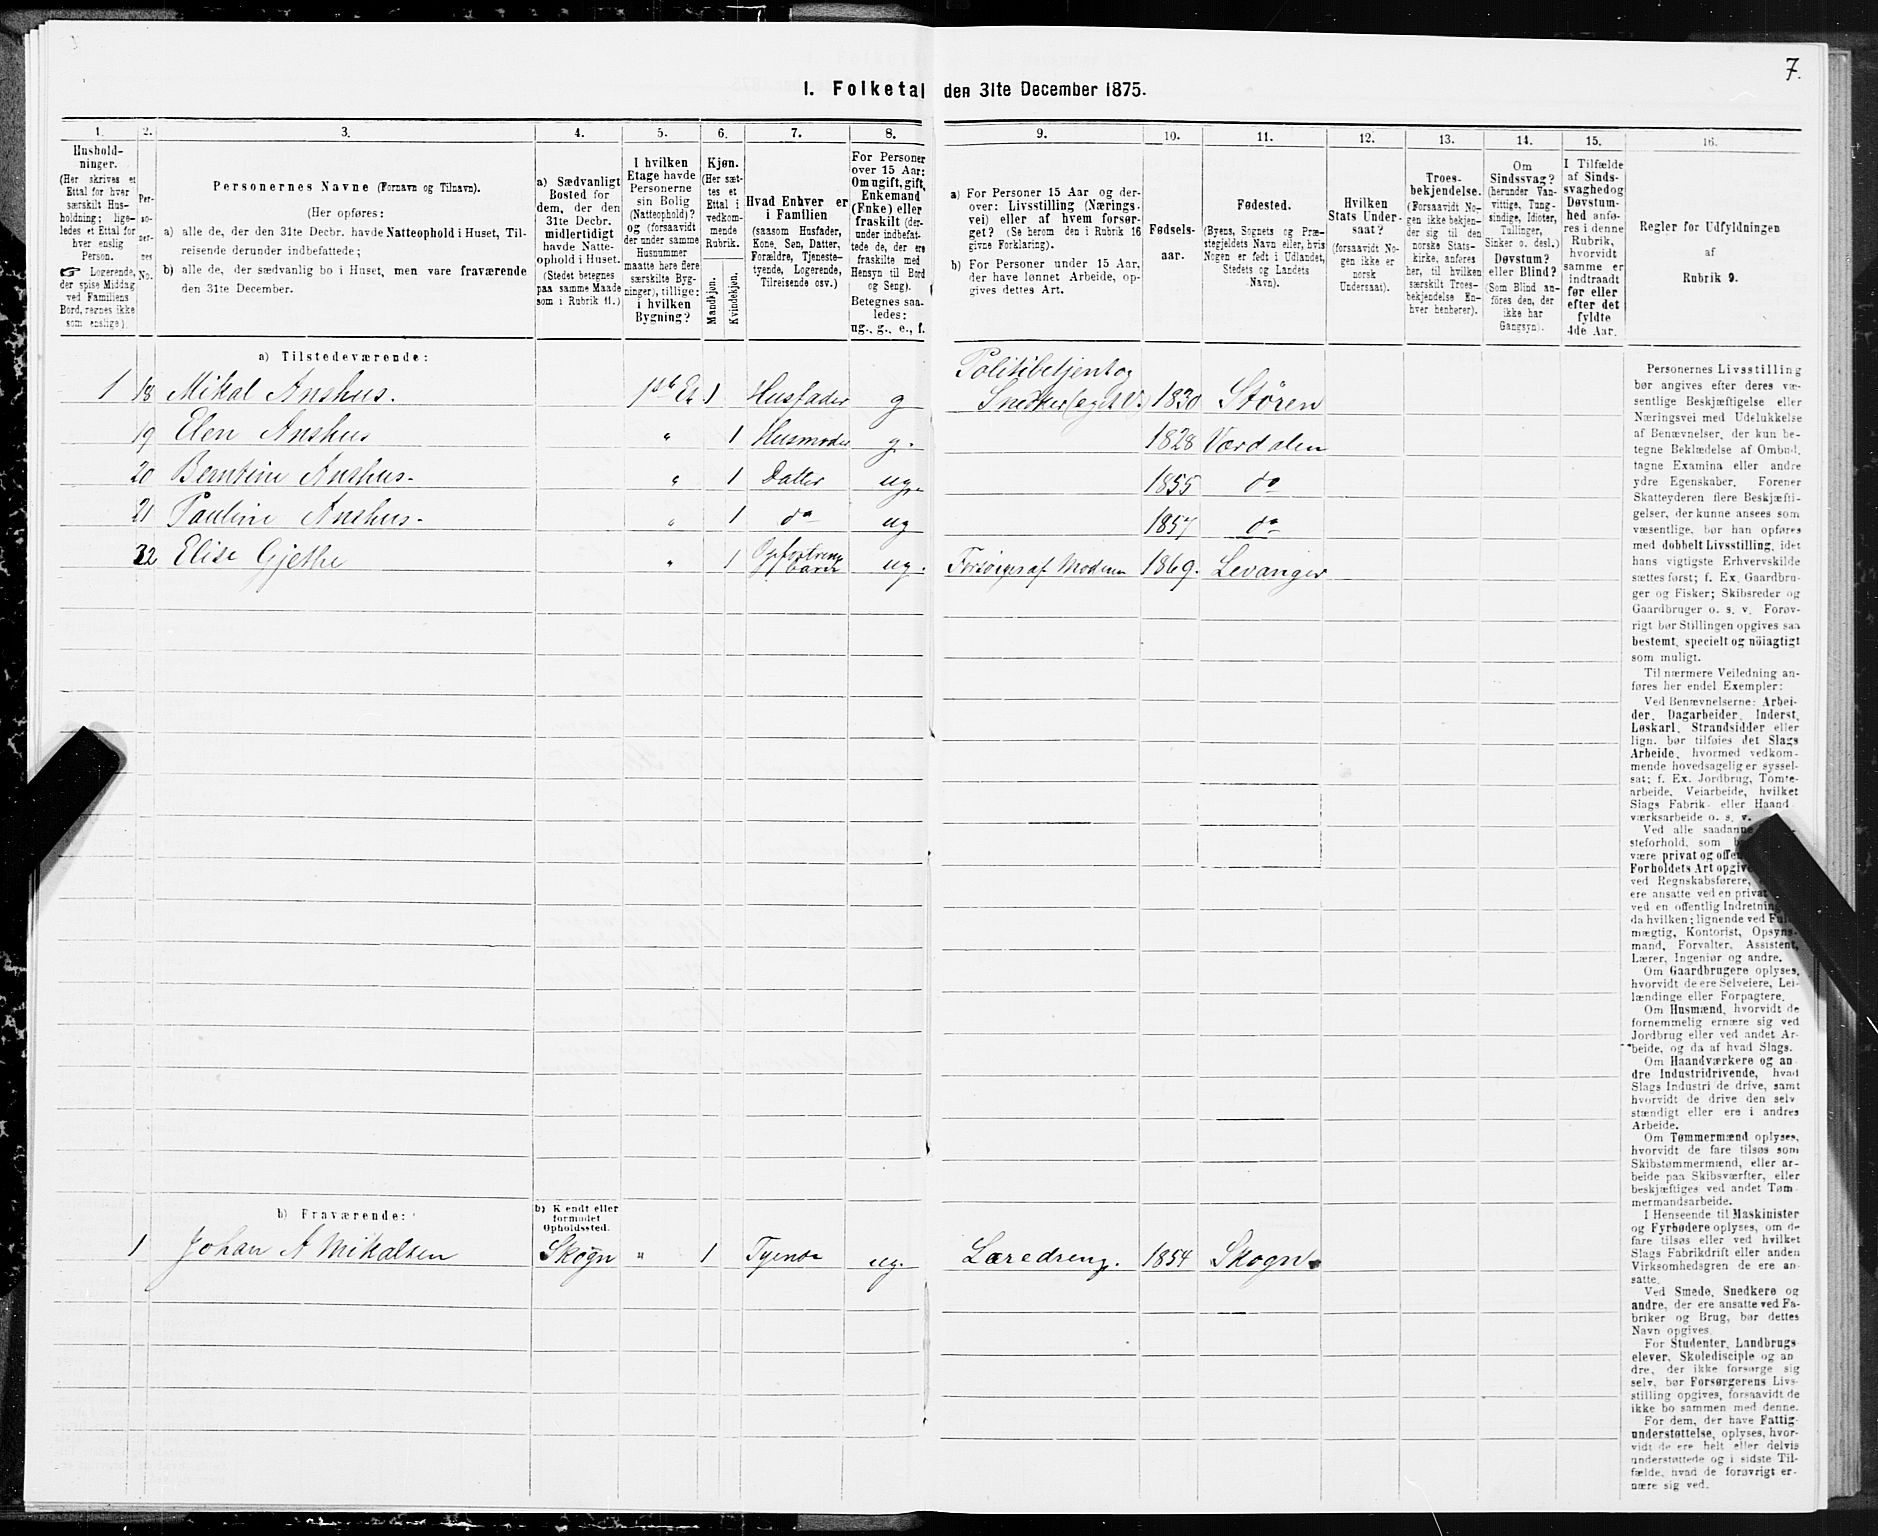 7.
I. Folketal den 31te December 1875.
1. 2. 3. 4. 5. 6. 7. 8. 9. 10. 11. 12. 13. 14. 15. 16.
Hushold-
ninger.
(Her skrives et
Ettal for hver
særskilt Hus-
holdning; lige-
ledes et Ettal for
hver enslig
Person.
☞ Logerende,
der spise Middag
ved Familiens
Bord, regnes ikke
som enslige).
Per-
so-
ner-
nes
No.
Personernes Navne (Fornavn og Tilnavn).
(Her opføres:
a) alle de, der den 31te Decbr. havde Natteophold i Huset, Til-
reisende derunder indbefattede;
b) alle de, der sædvanlig bo i Huset, men vare fraværende
den 31te December.
a) Sædvanligt
Bosted for
dem, der den
31te Decbr.
midlertidigt
havde Natte-
ophold i Huset.
(Stedet betegnes
paa samme Maade
som i Rubrik 11.)
I hvilken
Etage havde
Personerne
sin Bolig
(Natteophold)?
og (forsaavidt
der under samme
Husnummer
maatte høre flere
særskilte Byg-
ninger), tillige:
i hvilken
Bygning?
Kjøn.
(Her sæt-
tes et
Ettal i
vedkom-
mende
Rubrik.
Mandkjøn.
Kvindekjøn.
Hvad Enhver er
i Familien
(saasom Husfader,
Kone, Søn, Datter,
Forældre, Tjeneste-
tyende, Logerende,
Tilreisende osv.)
For Personer
over 15 Aar:
Om ugift, gift,
Enkemand
(Enke) eller
fraskilt (der-
under indbefat-
tede de, der ere
fraskilte med
Hensyn til Bord
og Seng).
Betegnes saa-
ledes:
ug., g., e., f.
a) For Personer 15 Aar og der-
over: Livsstilling (Nærings-
vei) eller af hvem forsør-
get? (Se herom den i Rubrik 16
givne Forklaring).
b) For Personer under 15 Aar,
der have lønnet Arbeide, op-
gives dettes Art.
Fødsels-
aar.
Fødested.
(Byens, Sognets og Præ-
stegjeldets Navn eller, hvis
Nogen er født i Udlandet,
Stedets og Landets
Navn).
Hvilken
Stats Under-
saat?
(forsaavidt No-
gen ikke er
norsk
Undersaat).
Troes-
bekjendelse.
(Forsaavidt No-
gen ikke bekjen-
der sig til den
norske Stats-
kirke, anføres
her, til hvilken
særskilt Troes-
bekjendelse En-
hver henhører).
Om
Sindssvag?
(herunder Van-
vittige, Tung-
sindige, Idioter,
Tullinger,
Sinker o. desl.)
Døvstum?
eller Blind?
(Som Blind an-
føres den, der
ikke har
Gangsyn).
I Tilfælde
af Sinds-
svaghed og
Døvstum-
hed anfø-
res i denne
Rubrik,
hvorvidt
samme er
indtraadt
før eller
efter det
fyldte
4de Aar.
Regler for Udfyldningen
af
Rubrik 9.
a) Tilstedeværende:
Politibetjent og
1 18 Mikal Anshus. 1ste Et. 1 Husfader g Snedker (eget V.) 1830 Stören
19 Elen Anshus " 1 Husmoder g. 1828 Værdalen
20 Berntine Anshus. " 1 Datter ug. 1855 do
21 Pauline Anshus. " 1 do ug 1857 do
22 Elise Gjethe " 1 Opfostrings barn ug. Forsörges af Moderen 1869. Levanger
b) Fraværende: b) Kendt eller
formodet
Opholdssted.
1 Johan A Mikalsen Skogn " 1 Tyende ug. Læredreng. 1854 Skogn.
Personernes Livsstilling
bør angives efter deres væ-
sentlige Beskjæftigelse eller
Næringsvei med Udelukkelse
af Benævnelser, der kun be-
tegne Beklædelse af Ombud,
tagne Examina eller andre
ydre Egenskaber. Forener
Skatteyderen flere Beskjæfti-
gelser, der kunne ansees som
væsentlige, bør han opføres
med dobbelt Livsstilling, idet
hans vigtigste Erhvervskilde
sættes først; f. Ex. Gaardbru-
ger og Fisker; Skibsreder og
Gaardbruger o. s. v. Forøv-
rigt bør Stillingen opgives saa
bestemt, specielt og nöiagtigt
som muligt.
Til nærmere Veiledning an-
føres her endel Exempler:
Ved Benævnelserne: Arbei-
der, Dagarbeider, Inderst,
Løskarl, Strandsidder eller
lign. bør tilføies det Slags
Arbeide, hvormed vedkom-
mende hovedsagelig er syssel-
sat; f. Ex. Jordbrug, Tomte-
arbeide, Veiarbeide, hvilket
Slags Fabrik- eller Haand-
værksarbeide o. s. v.
Ved alle saadanne
steforhold, som
være privat og offen
Forholdets Art opgive
ved Regnskabsførere,
ere ansatte ved en privat
ved en offentlig Indretning
da hvilken; lignende ved Fuld-
mægtig, Kontorist, Opsyns-
mand, Forvalter, Assistent,
Lærer, Ingeniør og andre.
Om Gaardbrugere oplyses,
hvorvidt de ere Selveiere, Lei-
lændinge eller Forpagtere.
Om Husmænd, hvorvidt de
fornemmelig ernære sig ved
Jordbrug eller ved andet Ar-
beide, og da af hvad Slags.
Om Haandværkere og an-
dre Industridrivende, hvad
Slags Industri de drive, samt
hvorvidt de drive den selv-
stændigt eller ere i andres
Arbeide.
Om Tømmermænd oplyses,
hvorvidt de fare tilsøs som
Skibstømmermænd, eller ar-
beide paa Skibsværfter, eller
beskjæftiges ved andet Tøm-
mermandsarbeide.
I Henseende til Maskinister
og Fyrbødere oplyses, om de
fare tilsøs eller ved hvilket
Slags Fabrikdrift eller anden
Virksomhedsgren de ere an-
satte.
Ved Smede, Snedkere og
andre, der ere ansatte ved Fa-
briker og Brug, bør dettes
Navn opgives.
For Studenter, Landbrugs-
elever, Skoledisciple og an-
dre, der ikke forsørge sig
selv, bør Forsørgerens Livs-
stilling opgives, forsaavidt de
ikke bo sammen med denne.
For dem, der have Fattig-
understøttelse, oplyses, hvor-
vidt de ere helt eller delvis
understøttede og i sidste Til-
fælde, hvad de forøvrigt er-
nære sig ved.